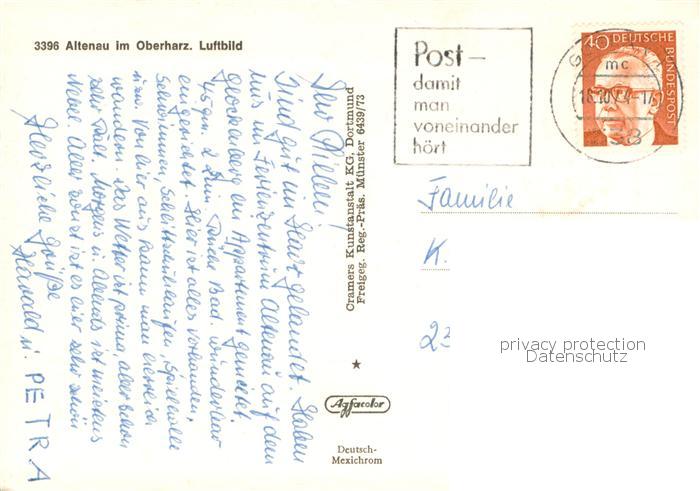 3396 Altenau im Oberharz. Luftbild
Post –
damit
man
voneinander
hört
40 DEUTSCHE
BUNDESPOST
mc
Familie
K.
privacy protection
Datenschutz
Cramers Kunstanstalt KG, Dortmund
Freigeg. Reg.-Präs. Münster 6439/73
Agfacolor
Deutsch-
Mexichrom
Sind gut im Harz gelandet. Haben
uns im Ferienzentrum Altenau auf dem
ein Appartement gemietet.
45 qm, Bad. wunderbar
eingerichtet. Hier ist alles vorhanden,
Schwimmen, Schlittschuhlaufen, Spielhalle
usw. Von hier aus kann man
wandern. Das Wetter ist prima, aber schon
sehr kalt. Morgens u. Abends ist meistens
Nebel. Aber sonst ist es hier sehr schön
Herzliche Grüße
Harald u. PETRA